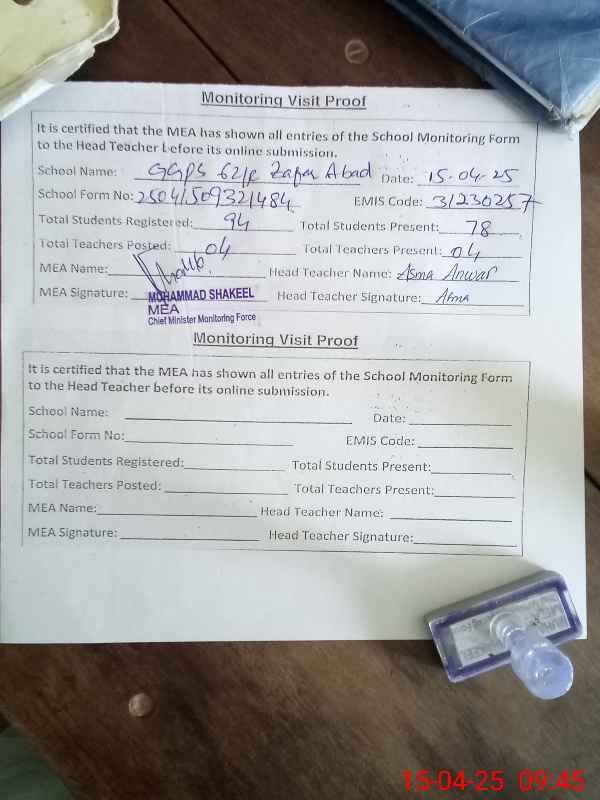 Monitoring Visit Proof
It is certified that the MEA has shown all entries of the School Monitoring Form
to the Head Teacher before its online submission.
School Name: GGPS 62/P Zafar Abad Date: 15-04-25
School Form No: 25041509321484 EMIS Code: 31230257
Total Students Registered: 94 Total Students Present: 78
Total Teachers Posted: 04 Total Teachers Present: 04
MEA Name: Head Teacher Name: Asma Anwar
MEA Signature: Head Teacher Signature: Asma
MUHAMMAD SHAKEEL
MEA
Chief Minister Monitoring Force
Monitoring Visit Proof
It is certified that the MEA has shown all entries of the School Monitoring Form
to the Head Teacher before its online submission.
School Name: Date:
School Form No: EMIS Code:
Total Students Registered: Total Students Present:
Total Teachers Posted: Total Teachers Present:
MEA Name: Head Teacher Name:
MEA Signature: Head Teacher Signature:
15-04-25 09:45